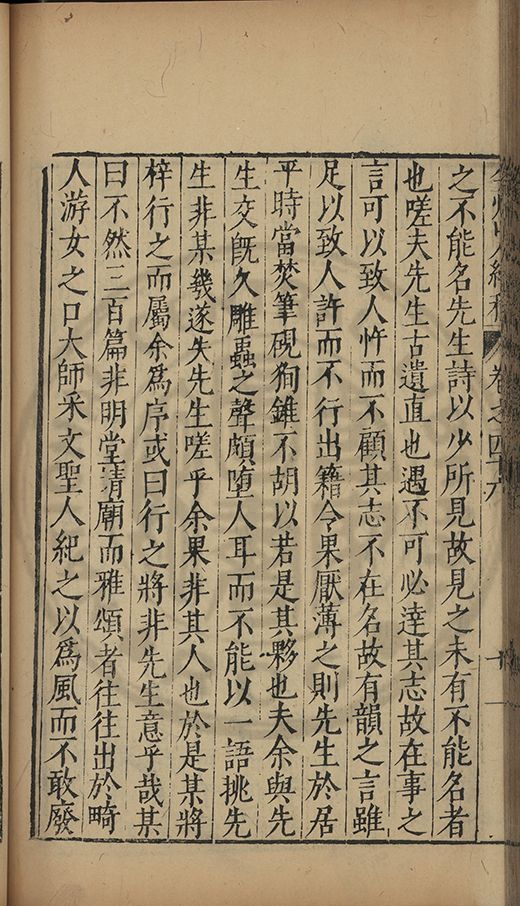 卷之四十六
之不能名先生詩以少所見故見之未有不能名者
也嗟夫先生古遺直也遇不可必達其志故在事之
言可以致人忤而不顧其志不在名故有韻之言雖
足以致人許而不行出籍令果厭薄之則先生於居
平時當焚筆硯狥錐不胡以若是其夥也夫余與先
生交旣久雕蟲之聲頗墮人耳而不能以一語挑先
生非某幾遂失先生嗟乎余果非其人也於是某將
梓行之而屬余爲序或曰行之將非先生意乎哉某
曰不然三百篇非明堂清廟而雅頌者往往出於畸
人游女之口大師采文聖人紀之以爲風而不敢廢